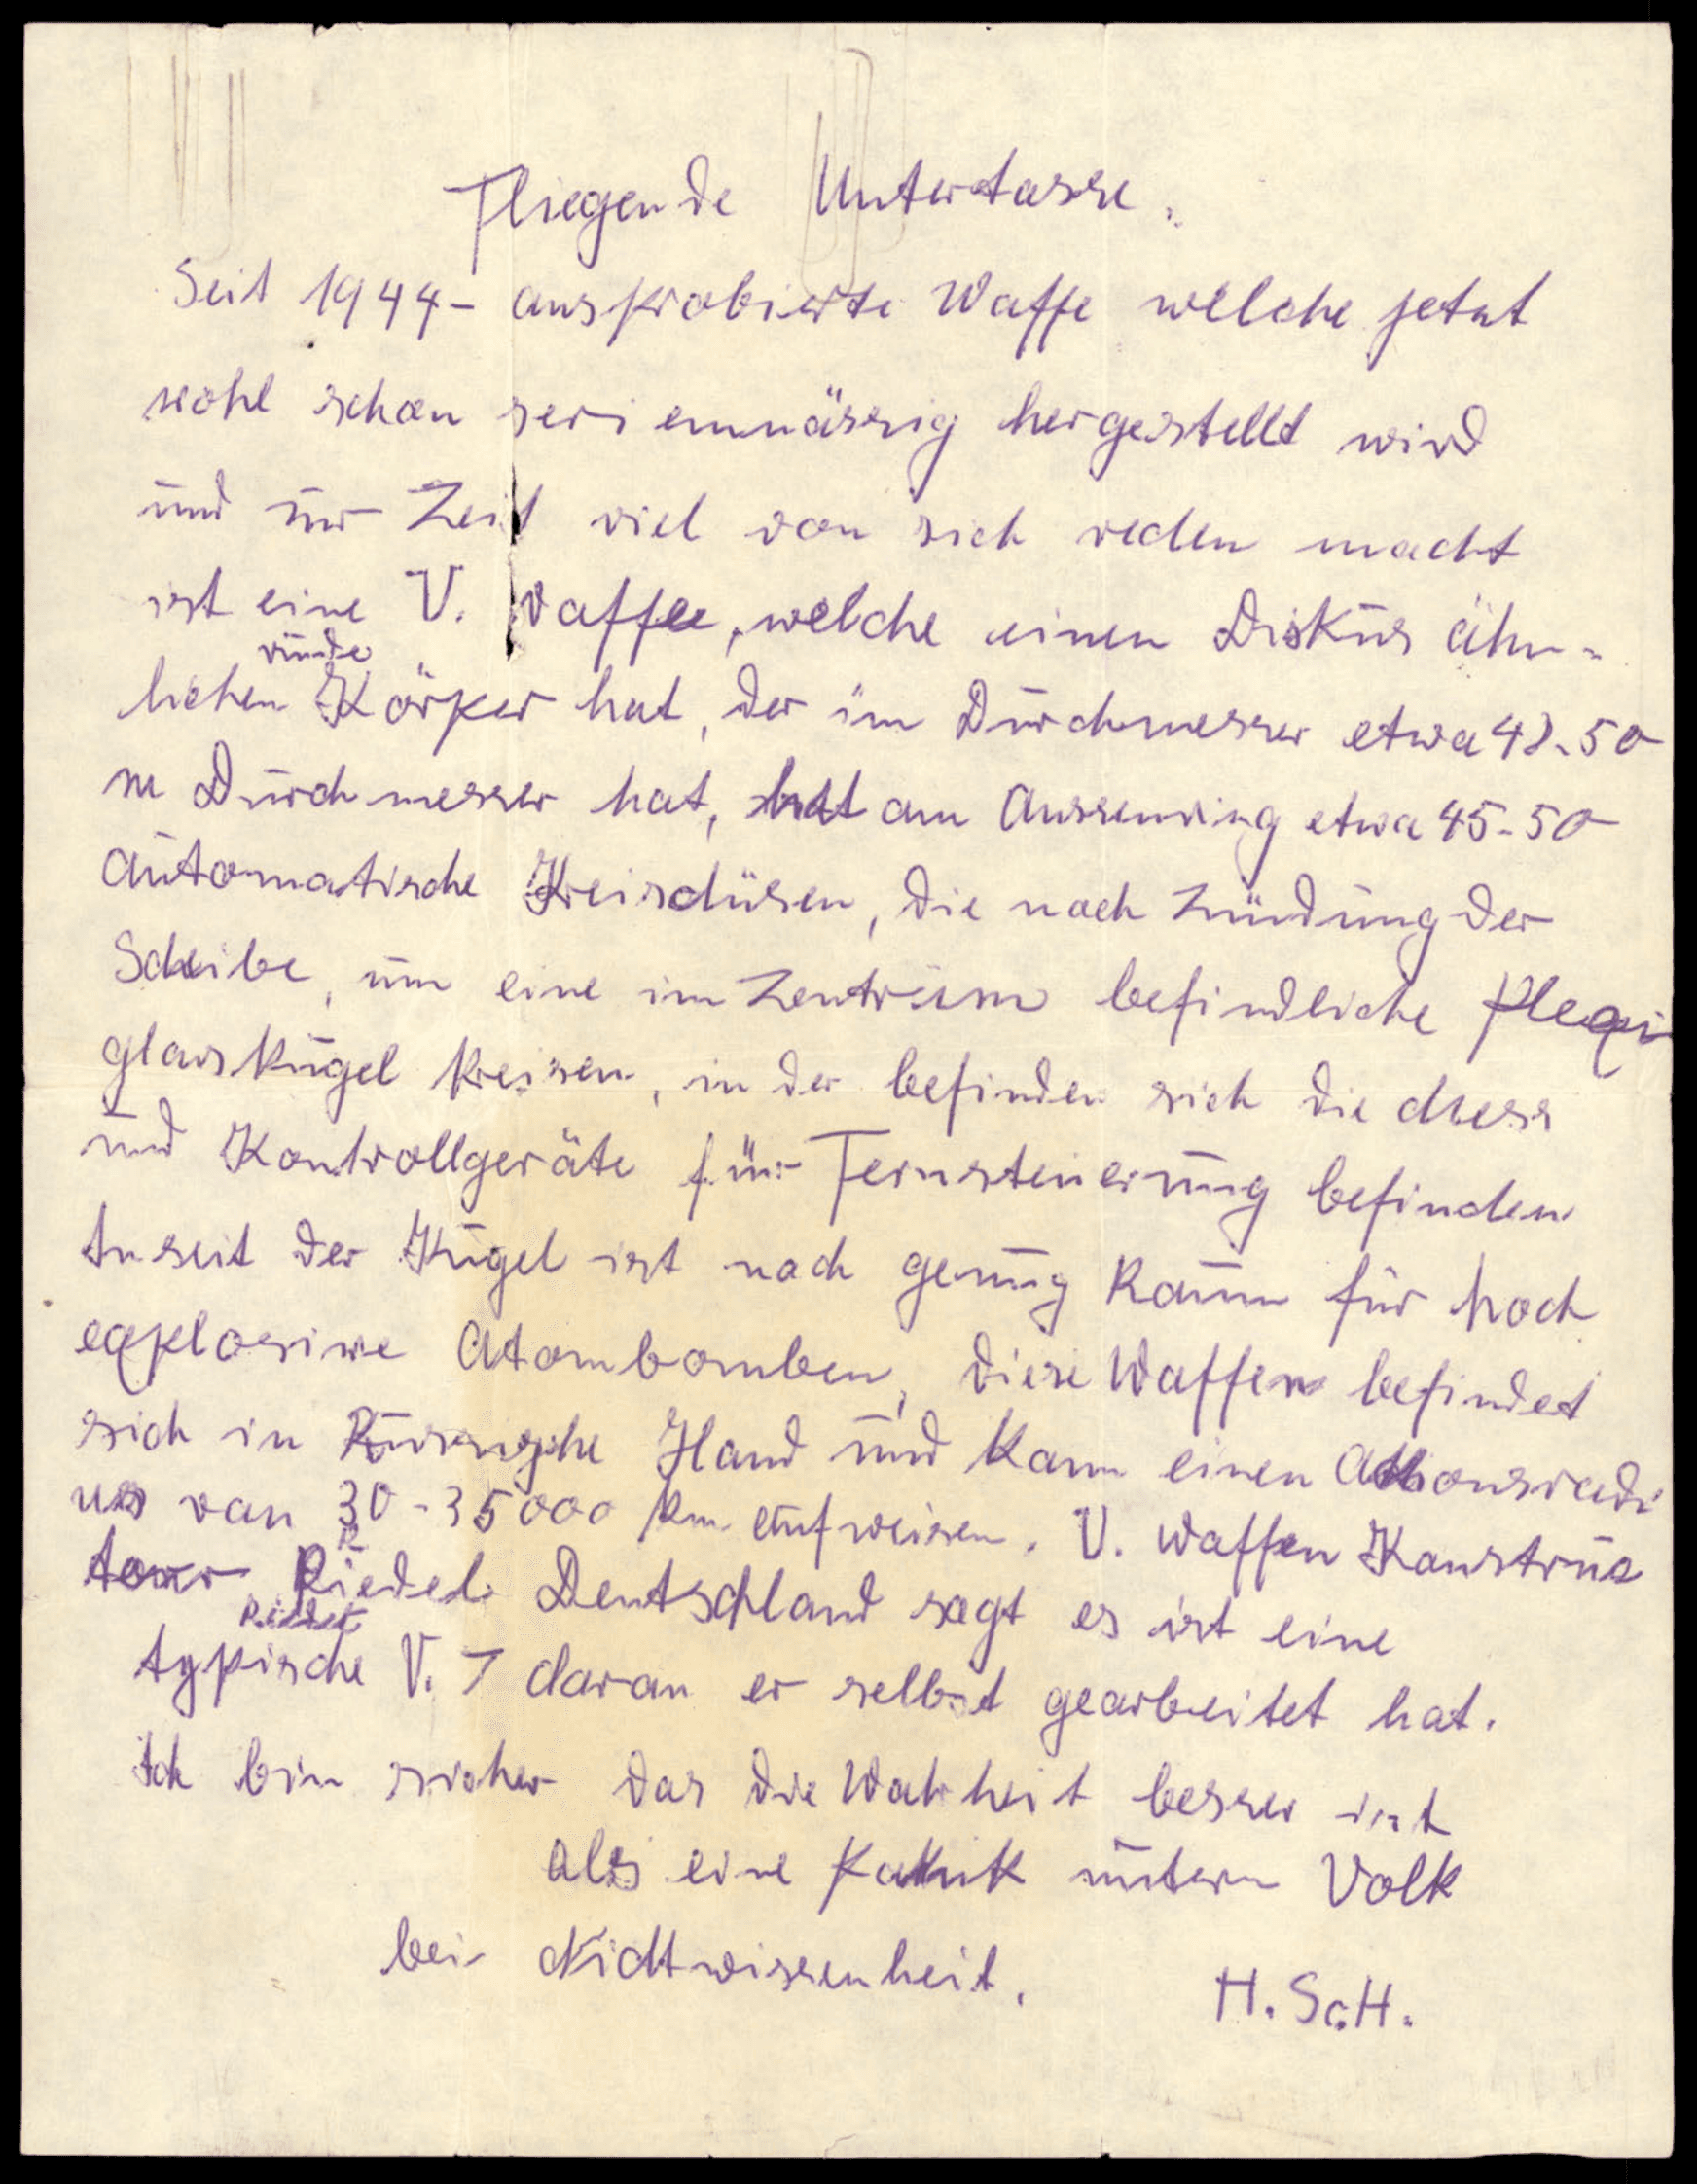 Fliegende Untertasse.
Seit 1944 - ausprobierte Waffe welche jetzt
wohl schon serienmässig hergestellt wird
und zur Zeit viel von sich reden macht
ist eine V. Waffe, welche einen Diskus ähn-
runde
lichen Körper hat, der im Durchmesser etwa 48-50
m Durchmesser hat, hat am Aussenring etwa 45-50
automatische Kreisdüsen, die nach Zündung der
Scheibe, um eine im Zentrum befindliche plexi
glaskugel kreisen, in der befinden sich die dress
und Kontrollgeräte für Fernsteuerung befinden
Inseit der Kugel ist noch genug Raum für hoch
explosive Atombomben, diese Waffen befindet
sich in Hand und kann einen Aktionsradi
us von 30-35000 km aufweisen. V. Waffen Konstruk
tour Riedel Deutschland sagt es ist eine
Riedel
typische V. 7 daran er selbst gearbeitet hat.
Ich bin sicher das die Wahrheit besser ist
als eine panik unterm Volk
bei Nichtwissenheit.
H. Sc.H.